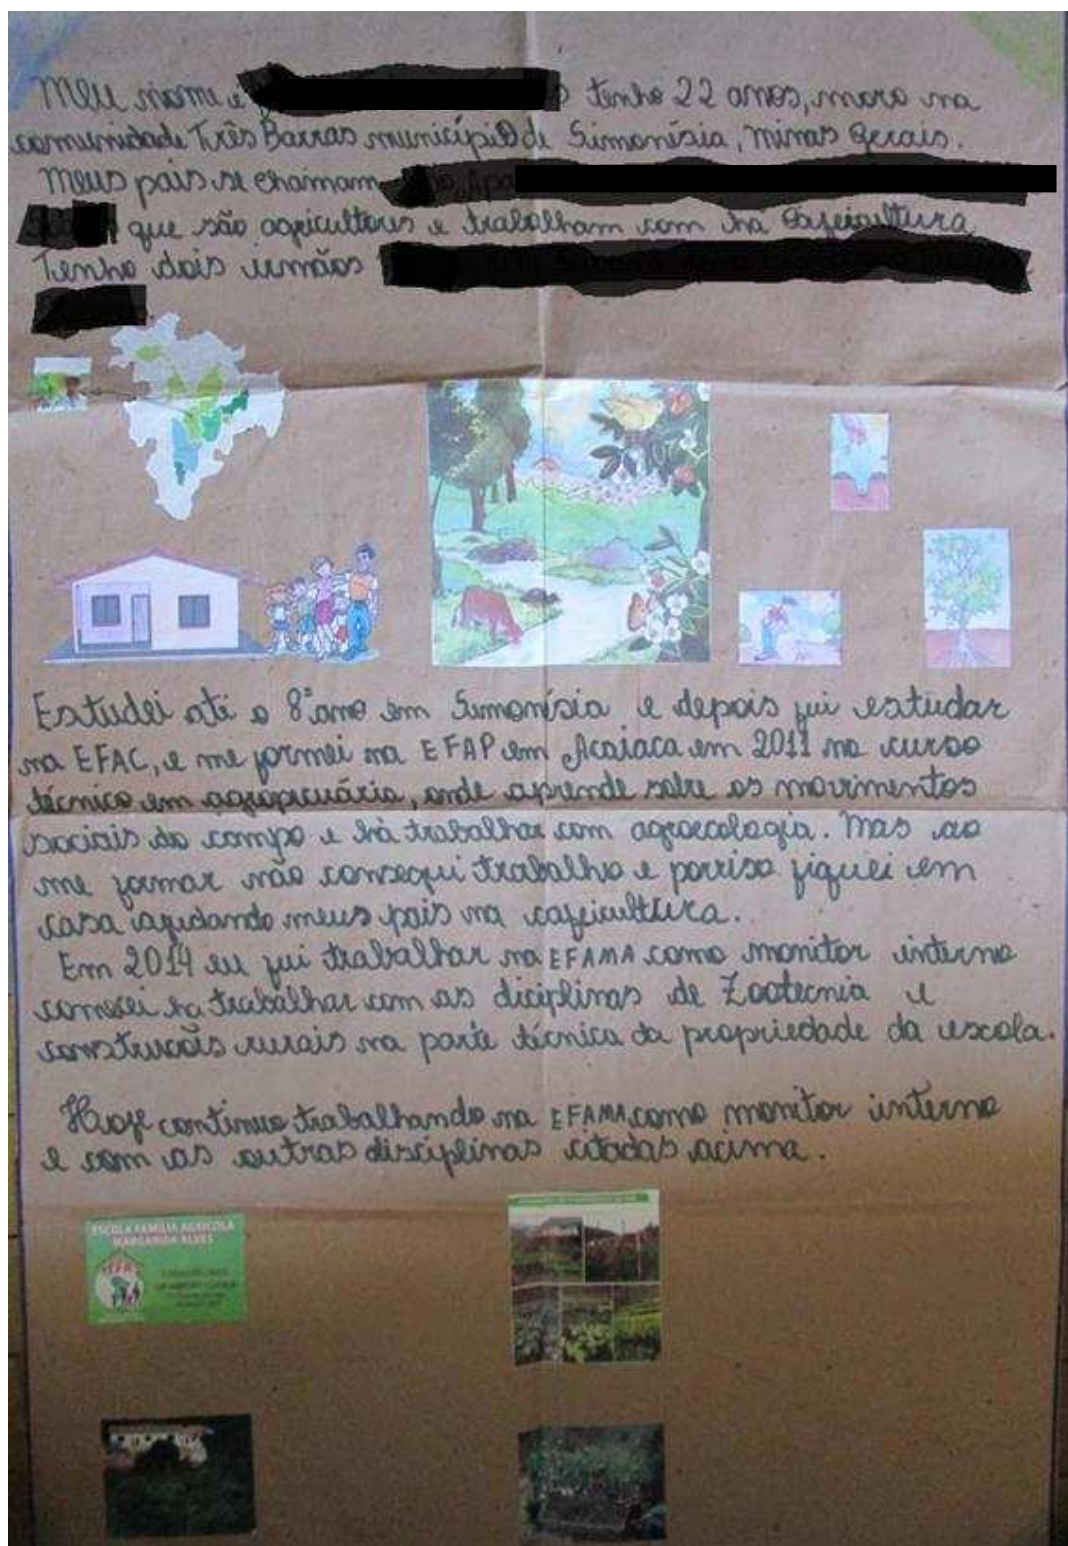 Meu nome e
tenho 22 anos, moro na
comunidade Três Barras município de Simonísia, Minas Gerais.
Meus pais se chamam
que são agricultores e trabalham com há cafeicultura
Tenho dois irmãos
Estudei até o 8º ano em Simonísia e depois fui estudar
na EFAC, e me formei na EFAP em Acaiaca em 2011 no curso
técnico em agropecuária, onde aprende sobre os movimentos
sociais do campo e há trabalhar com agroecologia. Mas ao
me formar não consegui trabalho e porriso fiquei em
casa ajudando meus pais na cafeicultura.
Em 2014 eu fui trabalhar na EFAMA como monitor interno
comesei ha trabalhar com as diciplinas de Zootecnia e
construcois rurais na parte técnica da propriedade da escola.
Hoje continuo trabalhando na EFAMA como monitor interno
e com as outras disciplinas citadas acima.
ESCOLA FAMÍLIA AGRÍCOLA
MARGARIDA ALVES